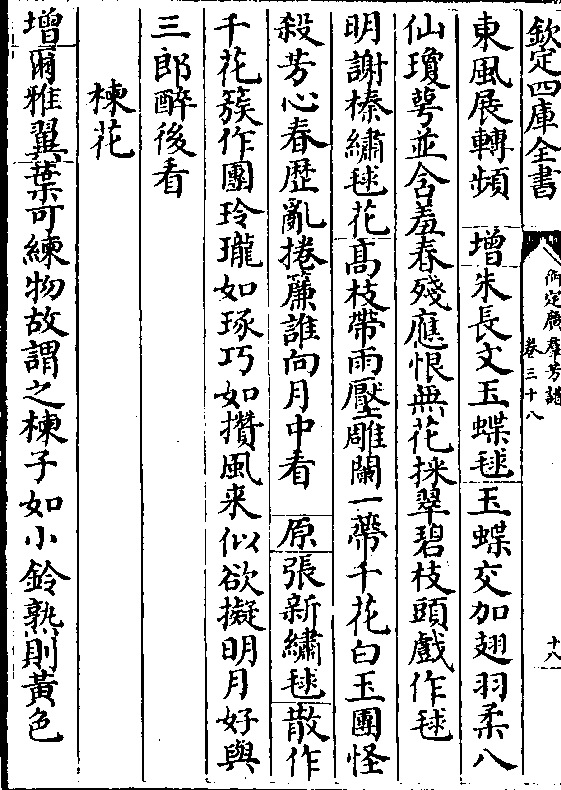 欽定四庫全書
御定廣群芳譜
卷三十八
十八
東風展轉頻　增朱長文玉蝶毬玉蝶交加翅羽柔八
仙瓊萼並含羞春殘應恨無花採翠碧枝頭戲作毬
明謝榛繡毬花髙枝帶雨壓雕闌一蔕千花白玉團怪
殺芳心春歴亂捲簾誰向月中看　原張新繡毬散作
千花簇作團玲瓏如琢巧如攢風来似欲擬明月好與
三郎醉後看
楝花
增爾雅翼葉可練物故謂之楝子如小鈴熟則黃色